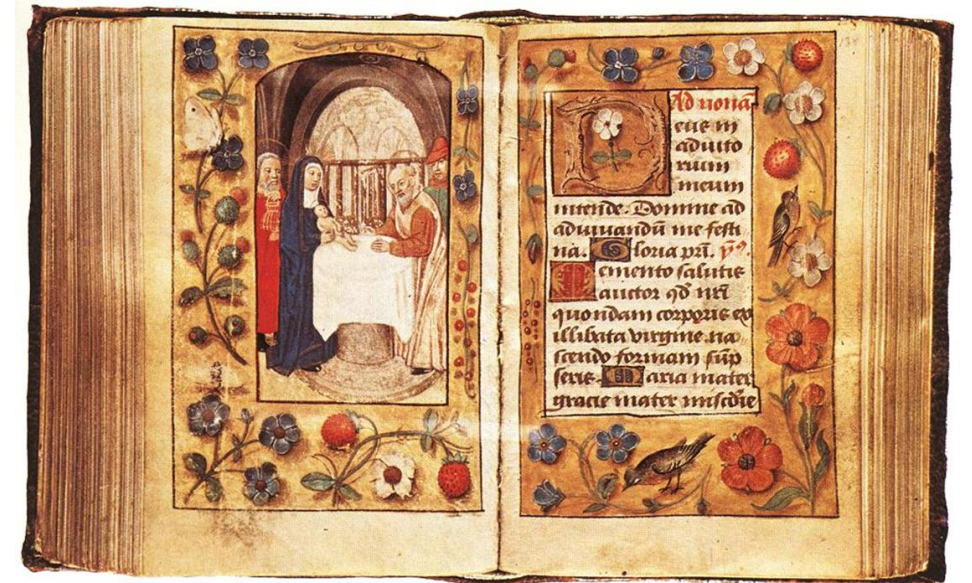 Ad nonā
Deus in
adiuto
rium
meum
intende. Domine ad
adiuuandū me festi
na. Gloria pri.
Memento salutis
auctor qd nri
quondam corporis ex
illibata virgine na
scendo formam sūp
seris. Maria mater
gracie mater miscdie